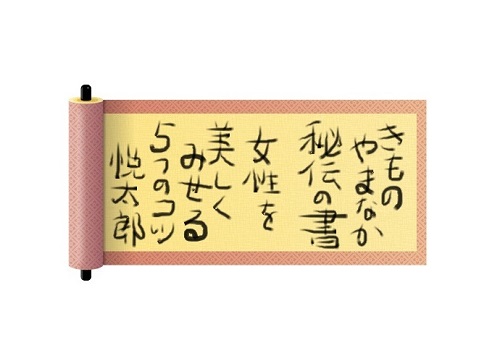 きもの
やまなか
秘伝の書
女性を
美しく
みせる
5つのコツ
悦太郎